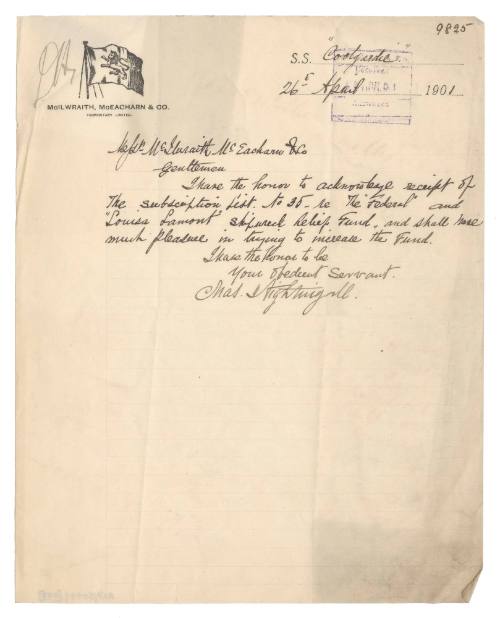 9825
S.S. "Coolgardie"
McILWRAITH, McEACHARN & CO.
PROPRIETARY LIMITED.
26th April 1901
Messrs McIlwraith McEacharn & Co
Gentlemen
I have the honor to acknowledge receipt of
the subscription list No 35 re "The Federal" and
"Louisa Lamont" shipwreck Relief Fund, and shall have
much pleasure in trying to increase the Fund.
I have the honor to be
Your obedient Servant.
Chas. Nightingall.